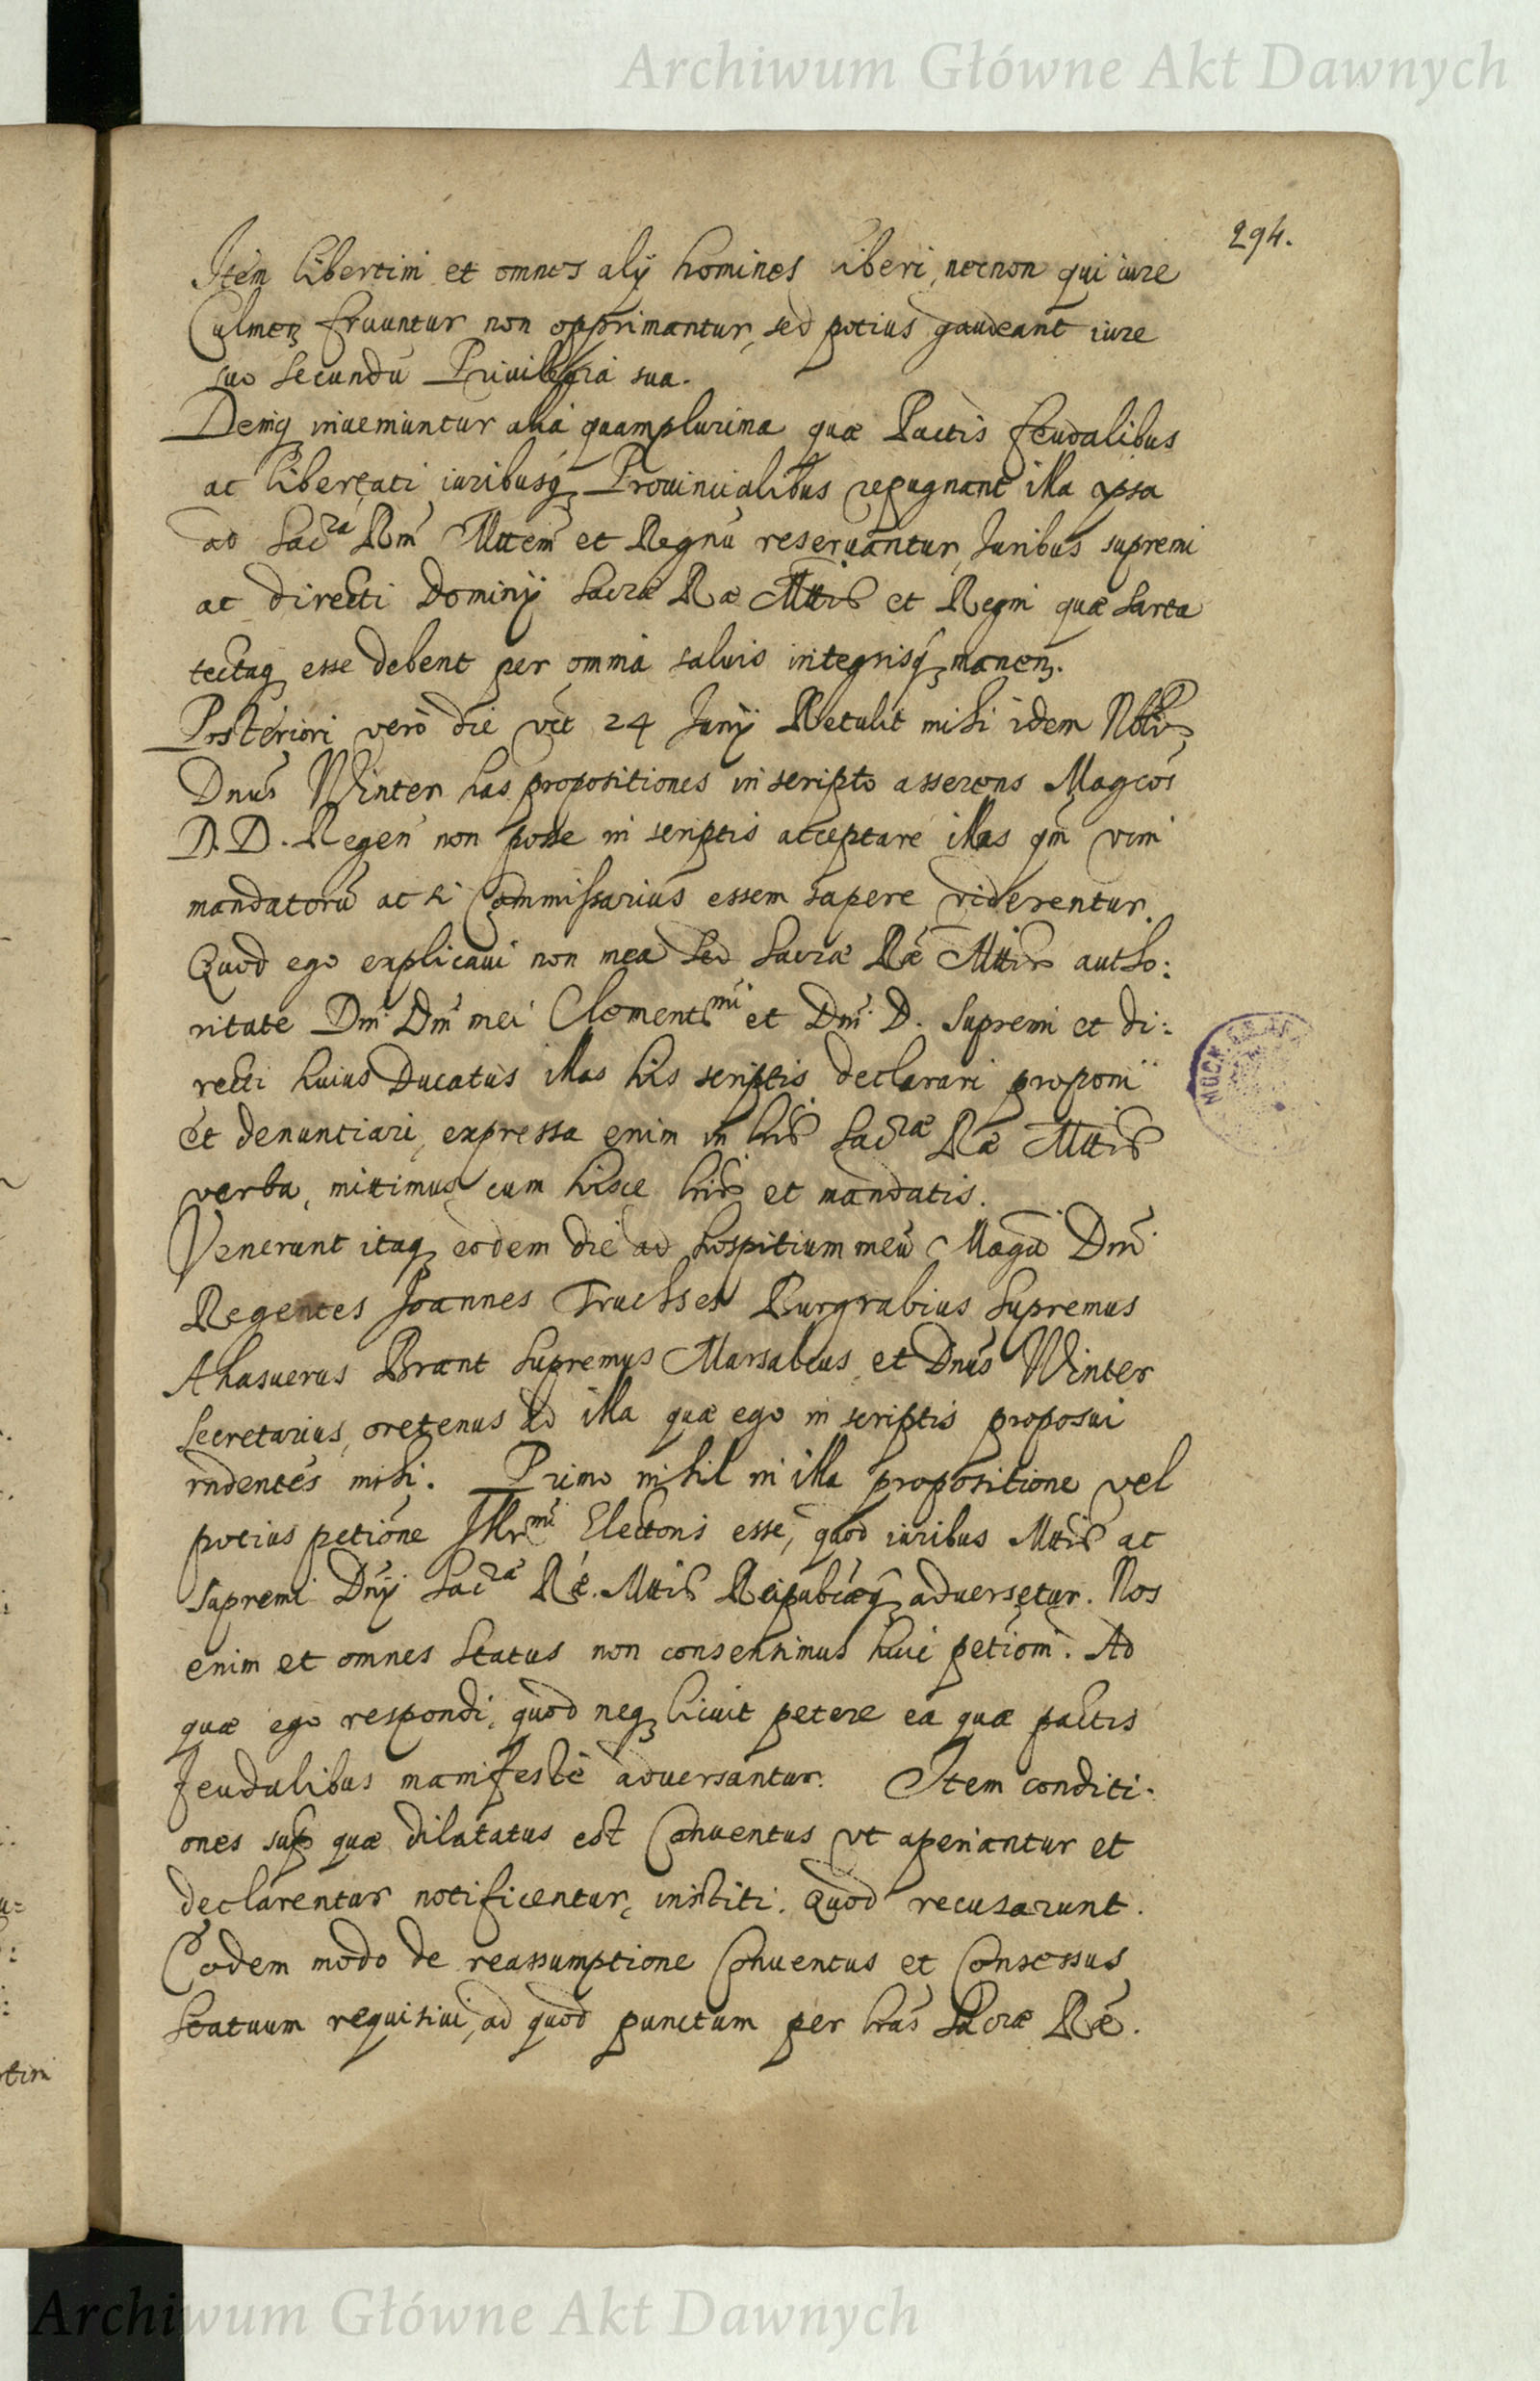 Archiwum Główne Akt Dawnych
294.
Item libertini et omnes alÿ homines liberi, necnon qui iure
Culmeñ fruuntur non opprimantur, sed potius gaudeant iure
suo secundū Priuilegia sua.
Deniq inueniuntur alia quamplurima quæ Pactis feudalibus
ac libertati iuribusq Prouincialibus repugnant illa ipsa
ad Sacra Rm Mttem et Regnū reseruantur, Juribus supremi
ac directi Dominÿ Sacræ Ræ Mttis et Regni quæ sarta
tectaq esse debent per omnia saluis integrisq manen.
Posteriori verò die vît 24 Junÿ Retulit mihi idem Nblis
Dnus Winter has propositiones in scripto asserens Magcos
D. D. Regen non posse in scriptis acceptare illas qm vim
mandatorū ac si Commissarius essem sapere viderentur.
Quod ego explicaui non mea sed Sacræ Ræ Mttis autho:
ritate Dni Dni mei Clementismi et Dni D. Supremi et di:
recti huius Ducatus illas his scriptis declarari proponi
et denuntiari, expressa enim in lris Sacræ Ræ Mttis
verba, mittimus cum hisce lris et mandatis.
Venerunt itaq eodem die ad hospitium meū Magci Dni
Regentes Joannes Truchses Burgrabius Supremus
Ahasuerus Brant Supremus Marsalcus et Dnus Winter
Secretarius, oretenus ad illa quæ ego in scriptis proposui
rndentes mihi. Primo nihil in illa propositione vel
potius petitione Illrmi Electoris esse, quod iuribus Mttis ac
supremi Dnÿ Sacræ Ræ. Mttis Reipubcæq aduersetur. Nos
enim et omnes Status non consensimus huic petioni. Ad
quæ ego respondi, quod neq licuit petere ea quæ pactis
feudalibus manifestè aduersantur. Item conditi-
ones sup quæ dilatatus est Conuentus vt aperiantur et
declarentur notificentur, institi. Quod recusarunt.
Eodem modo de reassumptione Conuentus et Consessus
Statuum requisiui, ad quod punctum per lras Sacræ Ræ.
Archiwum Główne Akt Dawnych